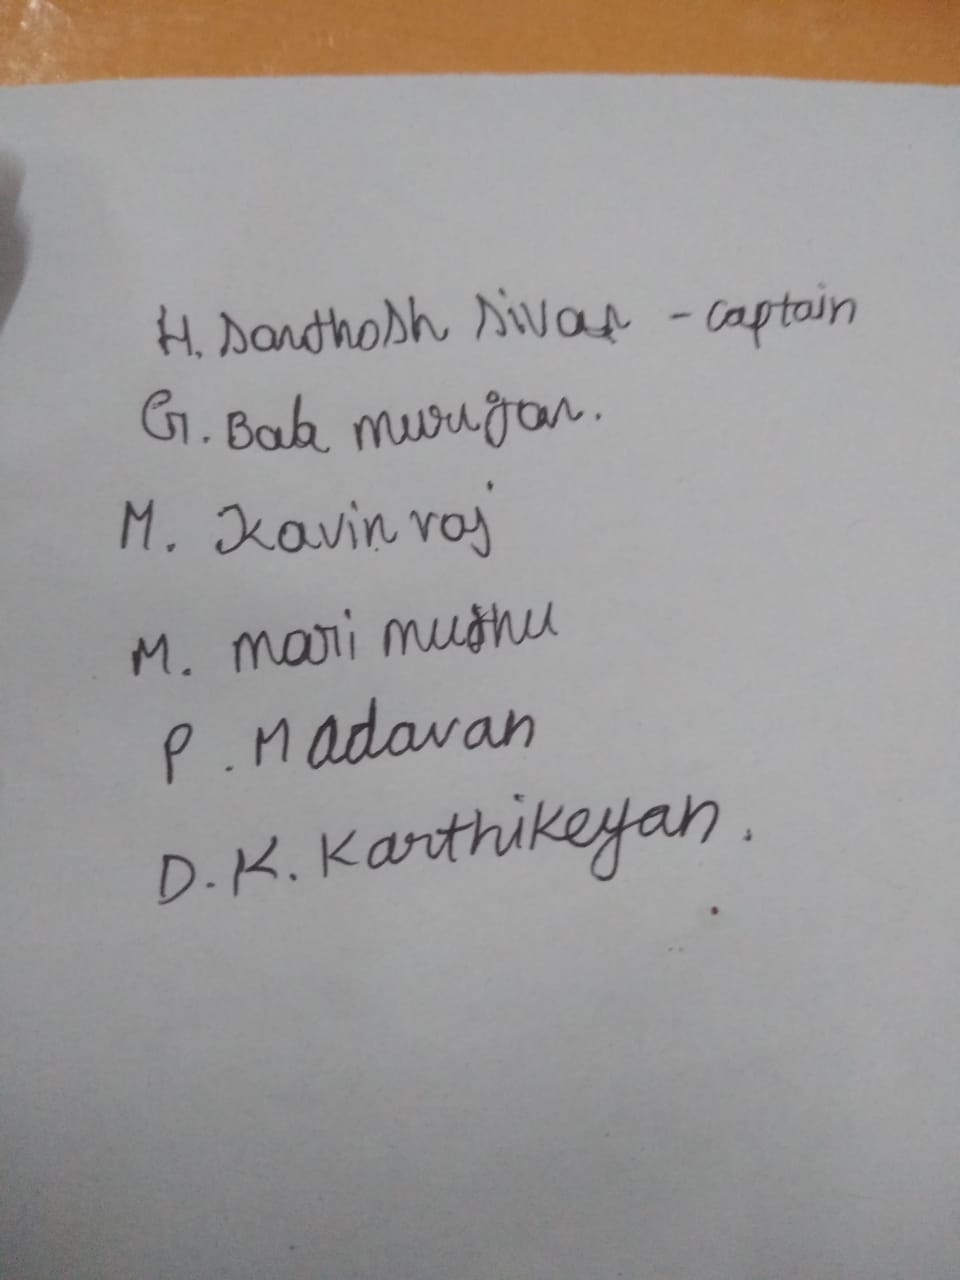 H. Santhosh Sivan - captain
G. Bala murugan.
M. Kavin raj
M. mari muthu
P. Madavan
D.K. Karthikeyan.